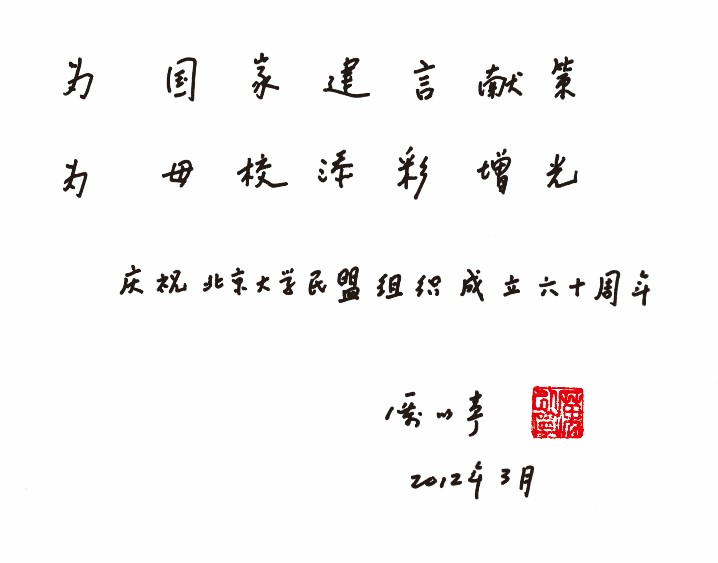 为国家建言献策
为母校添彩增光
庆祝北京大学民盟组织成立六十周年
厲以寧
2012年3月